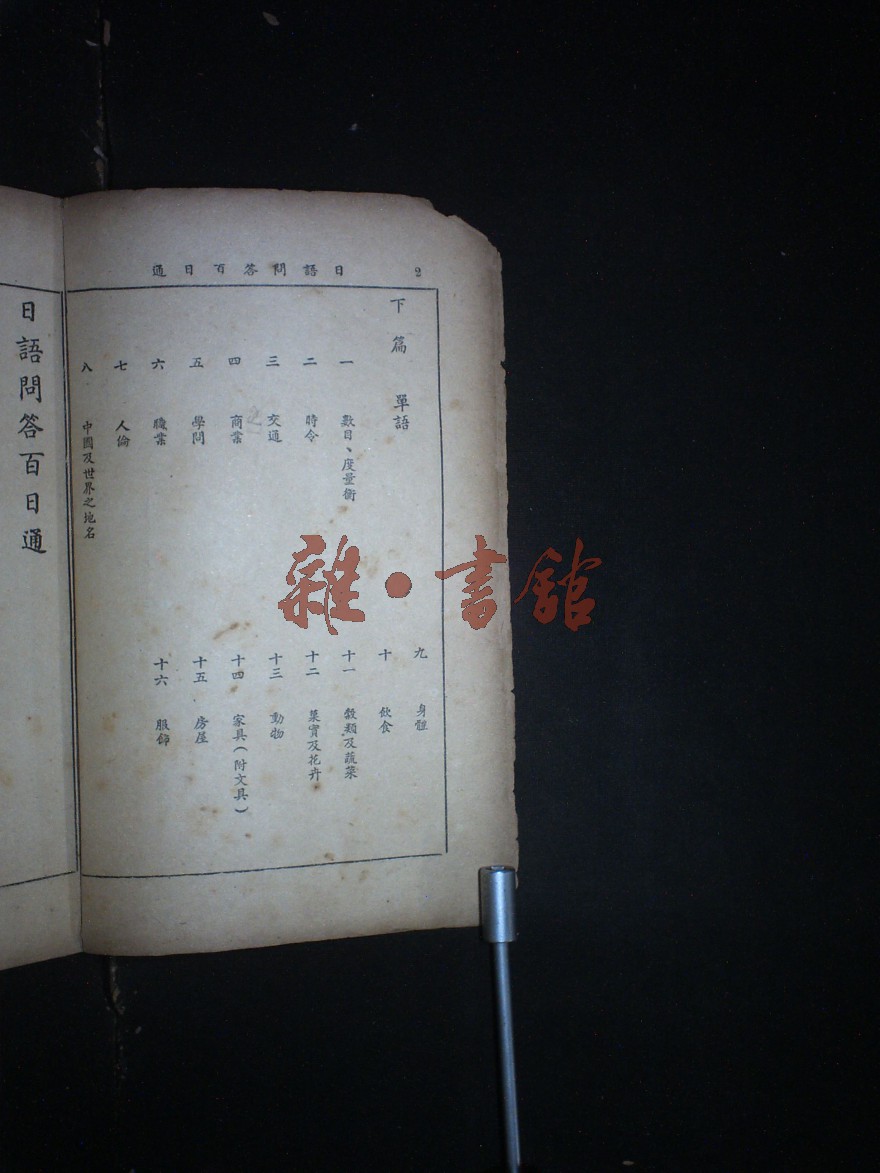 2 日語問答百日通
下篇 單語
一 數目、度量衡
二 時令
三 交通
四 商業
五 學問
六 職業
七 人倫
八 中國及世界之地名
九 身體
十 飲食
十一 穀類及蔬菜
十二 菓實及花卉
十三 動物
十四 家具(附文具)
十五 房屋
十六 服飾
日語問答百日通
雜·書館